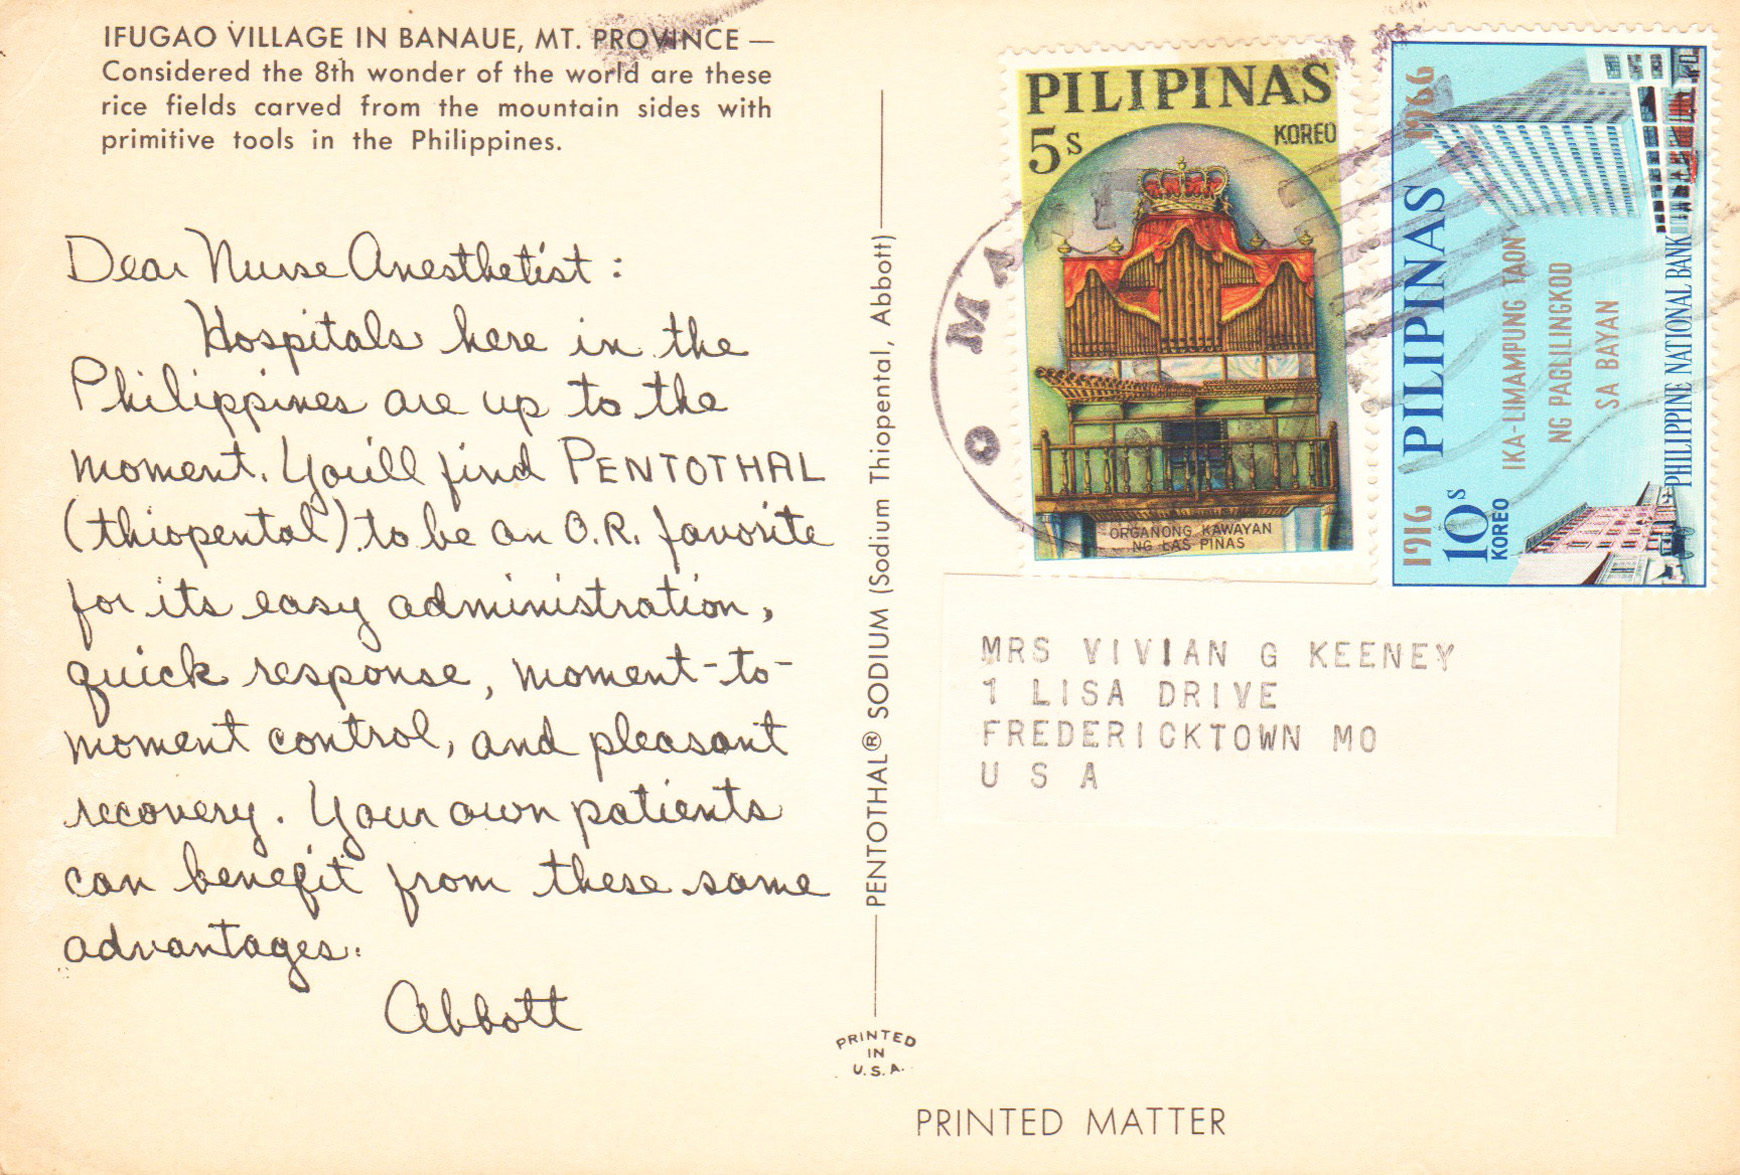 IFUGAO VILLAGE IN BANAUE, MT. PROVINCE —
Considered the 8th wonder of the world are these
rice fields carved from the mountain sides with
primitive tools in the Philippines.
Dear Nurse Anesthetist:
Hospitals here in the
Philippines are up to the
moment. You'll find PENTOTHAL
(thiopental) to be an O.R. favorite
for its easy administration,
quick response, moment-to-
moment control, and pleasant
recovery. Your own patients
can benefit from these same
advantages.
Abbott
PENTOTHAL® SODIUM (Sodium Thiopental, Abbott)
PRINTED
IN
U.S.A.
PILIPINAS
5s
KOREO
ORGANONG KAWAYAN
NG LAS PINAS
1916 1966
PILIPINAS
10s
KOREO
IKA-LIMAMPUNG TAON
NG PAGLILINGKOD
SA BAYAN
PHILIPPINE NATIONAL BANK
MRS VIVIAN G KEENEY
1 LISA DRIVE
FREDERICKTOWN MO
U S A
PRINTED MATTER